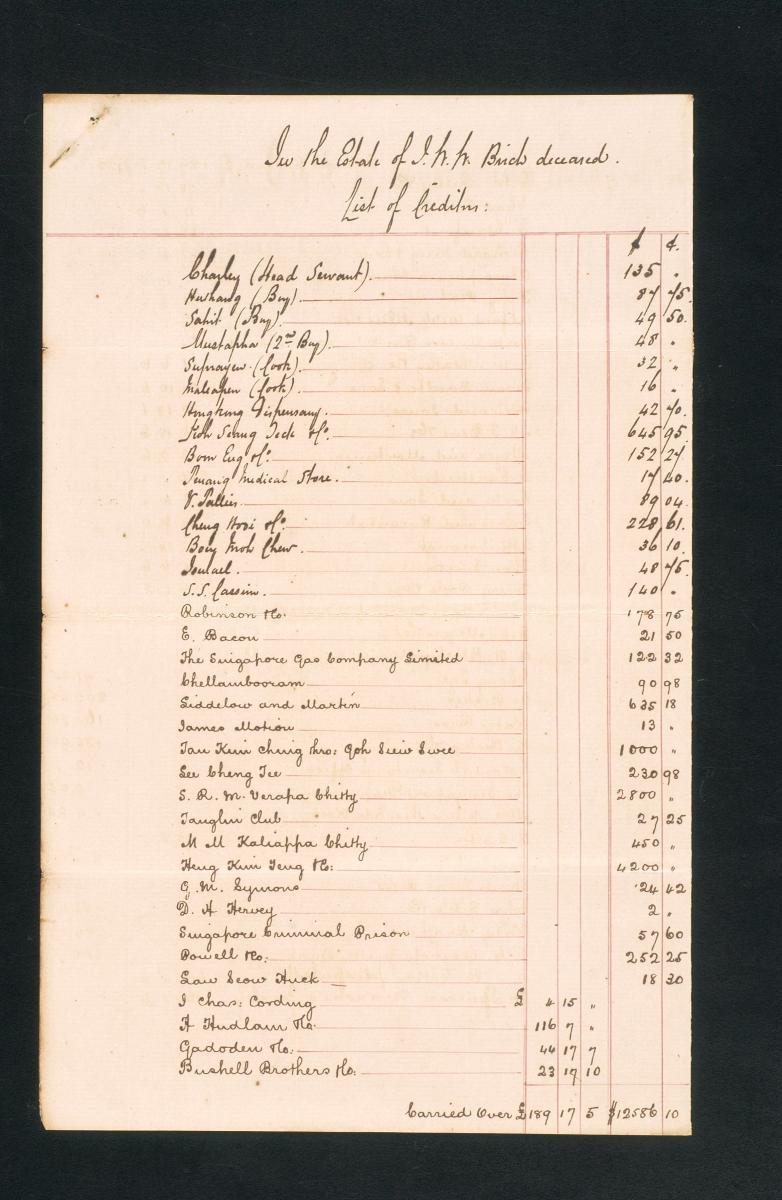 In the Estate of J. W. W. Birch deceased.
List of Creditors:
$ ¢.
Charley (Head Servant). 135 "
Hushang (Boy). 87 75.
Sahit (Boy). 49 50.
Mustapha (2nd Boy). 48 "
Supnayen (Cook). 32 "
Maleapen (Cook). 16 "
Hongkong Dispensary. 42 70.
Koh Seang Teck & Co. 645 95.
Boon Eng & Co. 152 27.
Penang Medical Store. 17 40.
V. Pallier 89 04.
Cheng Hooi & Co. 228 61.
Boey Moh Chew. 36 10.
Ismael. 48 75.
S. S. Cassim. 140 "
Robinson & Co. 178 75
E. Bacon 21 50
The Singapore Gas Company Limited 122 32
Chellambooram 90 98
Liddelow and Martin 635 18
James Motion 13 "
Tan Kim Ching thro: Goh Siew Swee 1000 "
Lee Cheng Tee 230 98
S. R. M. Verapa Chitty 2800 "
Tanglin Club 27 25
M M Kaliappa Chitty 450 "
Heng Kim Yeng & Co: 4200 "
G. M. Symons 24 42
D. H Hervey 2 "
Singapore Criminal Prison 57 60
Powell & Co: 252 25
Law Seow Huck 18 30
J Chas: Cording £ 4 15 "
H Hudlam & Co. 116 7 "
Gadoden & Co: 44 17 7
Bushell Brothers & Co: 23 17 10
Carried Over £189 17 5 $12586 10